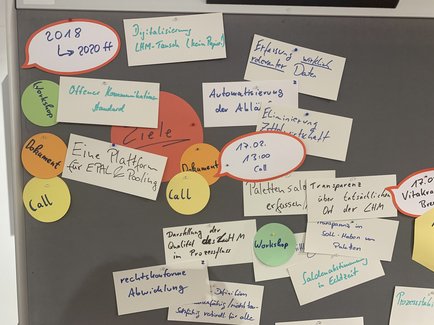 2018
↳ 2020 ff
Digitalisierung
LHM-Tausch (kein Papier)
Erfassung wirklich
relevanter Daten
Workshop
Offener Kommunikations-
Standard
Automatisierung
der Ablä
Eliminierung
Zettelwirtschaft
Ziele
Dokument
Eine Plattform
für EPAL & Pooling
Dokument
17.02.
13:00
Call
Call
Call
Paletten
erfassen
Transparenz
über tatsächlichen
Ort der LHM
Vitakra
Bre
Darstellung der
Qualität des LHM
im Prozessfluss
Workshop
Transparenz in
Soll-Haben von
Paletten
rechtskonforme
Abwicklung
Definition
für alle
Saldenabstimmung
in Echtzeit